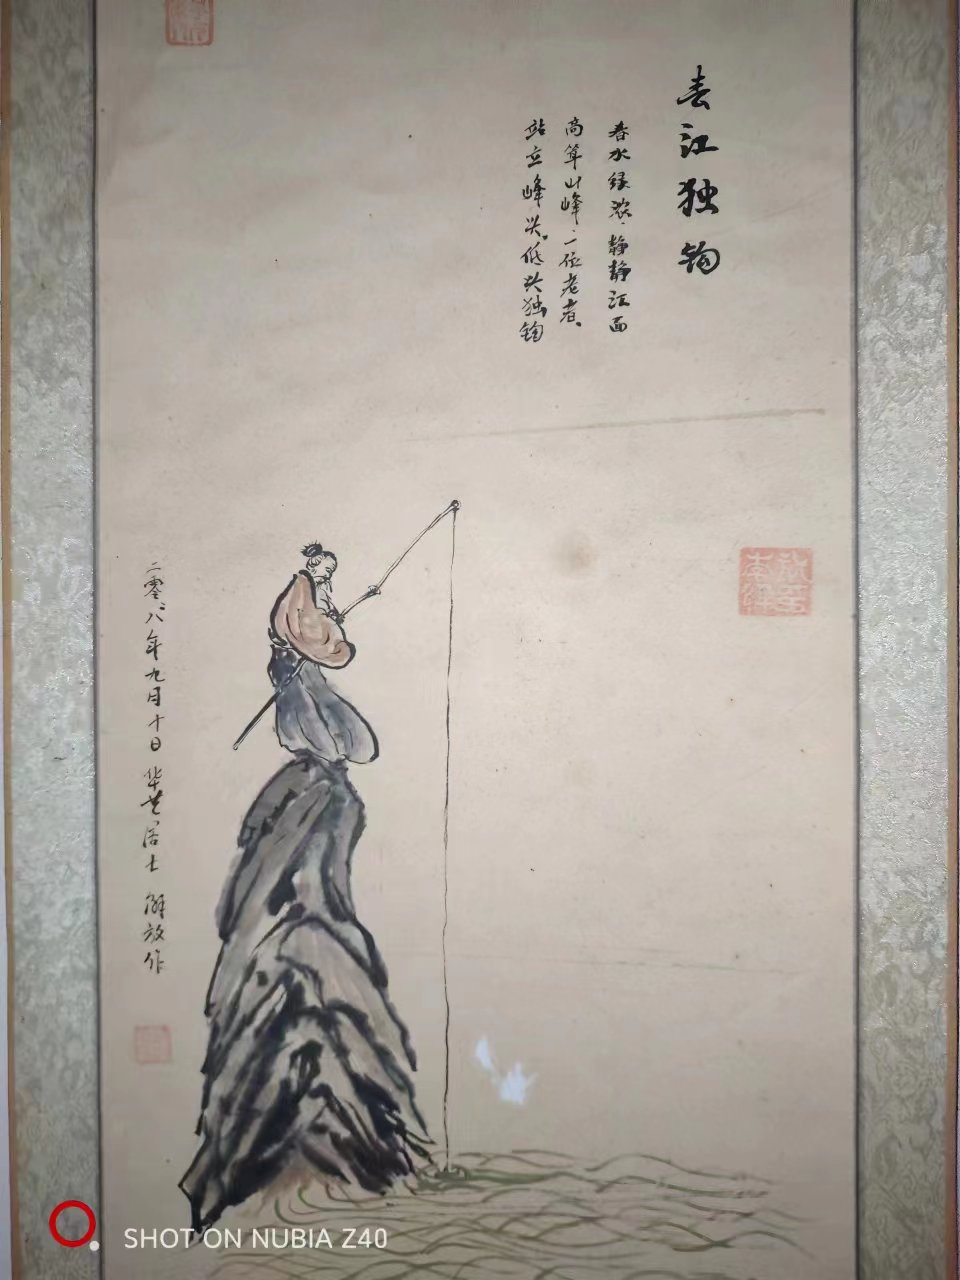 春江独钓
春水绿浓、静静江面
高耸山峰、一位老者、
站立峰头、低头独钓
二零零八年九月十日 华芝居士 解放作
SHOT ON NUBIA Z40